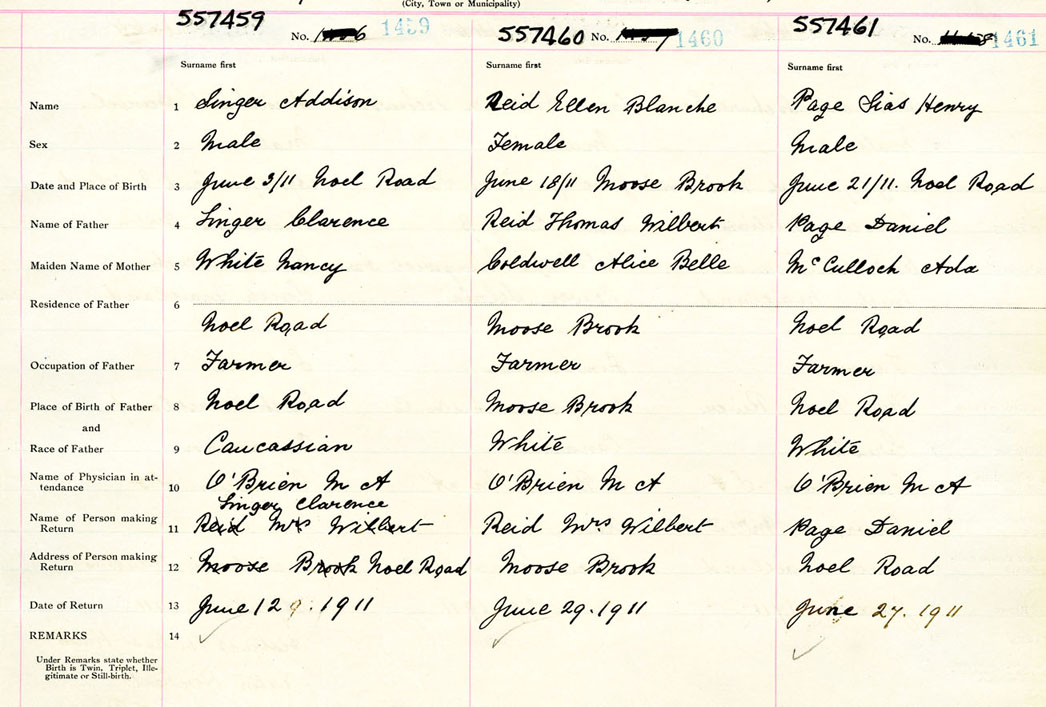 (City, Town or Municipality)
557459 No. 1459 557460 No. 1460 557461 No. 1461
Surname first Surname first Surname first
Name 1 Singer Addison Reid Ellen Blanche Page Sias Henry
Sex 2 Male Female Male
Date and Place of Birth 3 June 3/11 Noel Road June 18/11 Moose Brook June 21/11. Noel Road
Name of Father 4 Singer Clarence Reid Thomas Wilbert Page Daniel
Maiden Name of Mother 5 White Nancy Coldwell Alice Belle McCulloch Ada
Residence of Father 6
Noel Road Moose Brook Noel Road
Occupation of Father 7 Farmer Farmer Farmer
Place of Birth of Father 8 Noel Road Moose Brook Noel Road
and
Race of Father 9 Caucassian White White
Name of Physician in at-
tendance 10 O'Brien M A O'Brien M A O'Brien M A
Singer Clarence
Name of Person making
Return 11 Reid Mrs Wilbert Reid Mrs Wilbert Page Daniel
Address of Person making
Return 12 Moose Brook Noel Road Moose Brook Noel Road
Date of Return 13 June 12 9. 1911 June 29. 1911 June 27. 1911
REMARKS 14
Under Remarks state whether
Birth is Twin, Triplet, Ille-
gitimate or Still-birth.